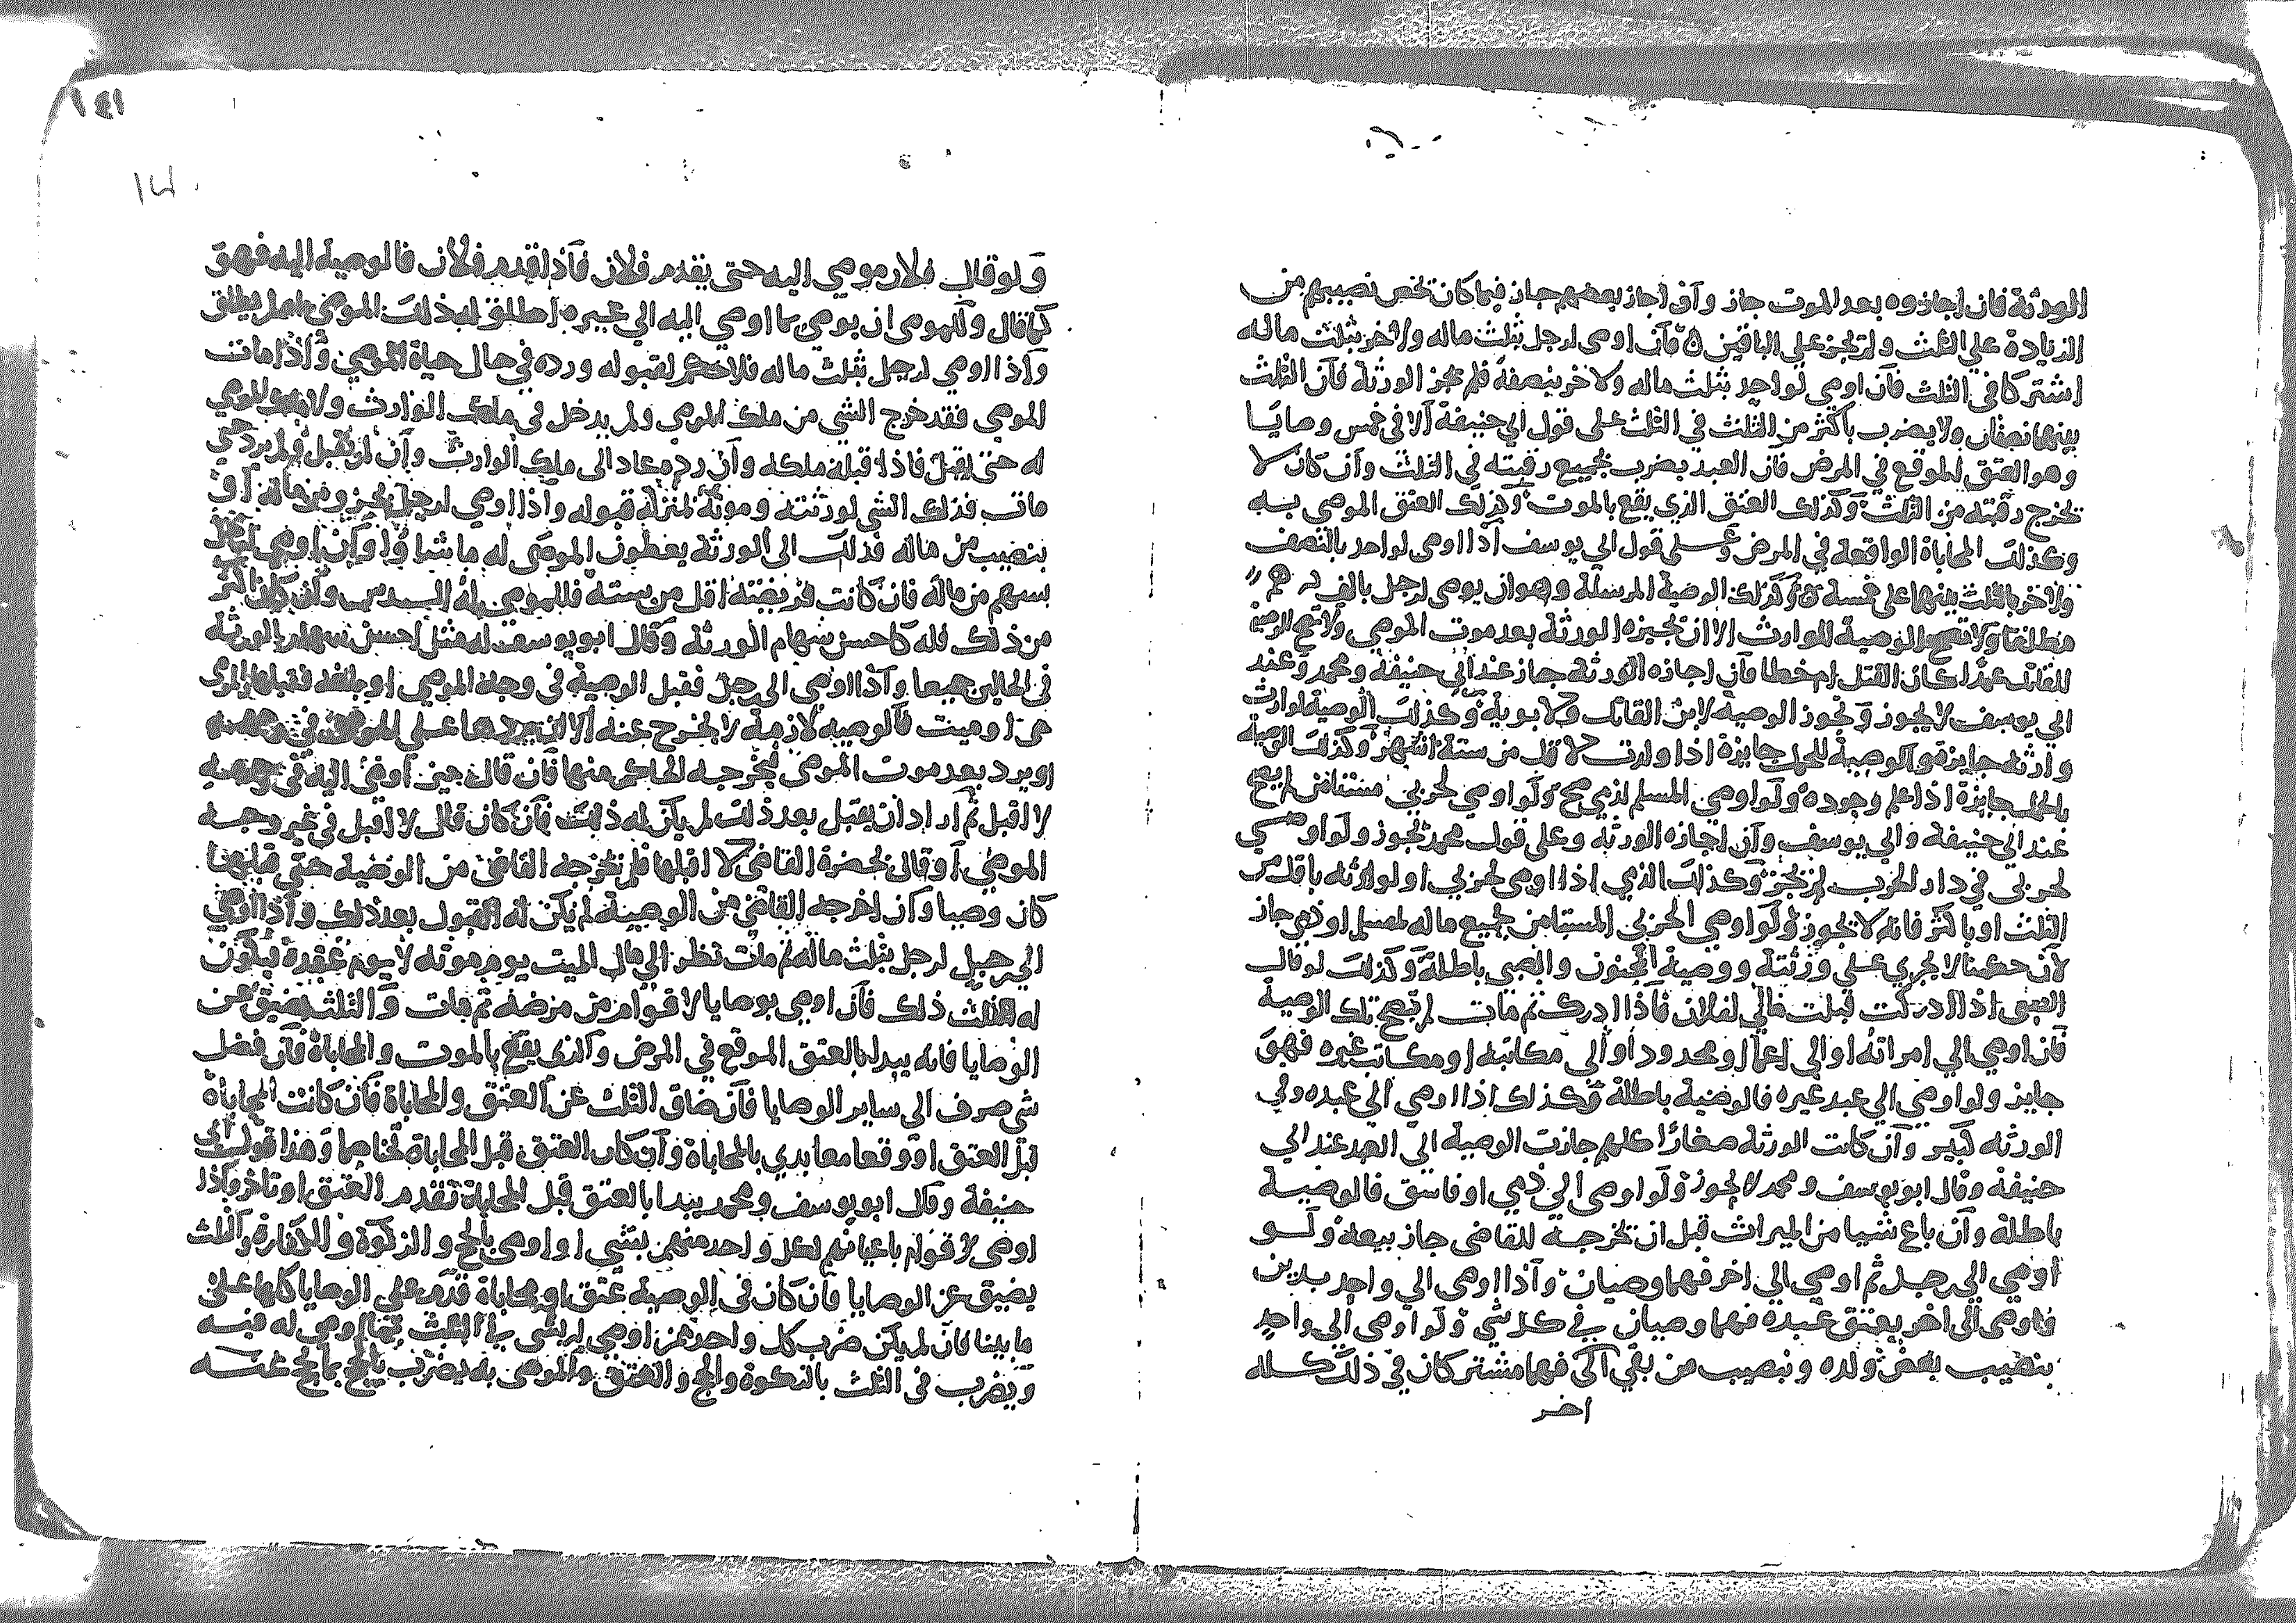 الورثة فان اجازوه بعد الموت جاز وان اجاز بعضهم جاز فيما كان يخص نصيبهم من
الزيادة على الثلث ولم يجز على الباقين فان اوصى لرجل بثلث ماله ولاخر بثلث ماله
اشتركا في الثلث فان اوصى لواحد بثلث ماله ولاخر بنصفه فلم يجز الورثة فان الثلث
بينهما نصفان ولا يضرب باكثر من الثلث في الثلث على قول ابي حنيفة الا في خمس وصايا
وهو العتق الموقع في المرض فان العبد يضرب بجميع رقبته في الثلث وان كان لا
تخرج رقبته من الثلث وكذلك العتق الذي يقع بالموت وكذلك العتق الموصى به
وكذلك المحاباة الواقعة في المرض وعلى قول ابي يوسف اذا اوصى لواحد بالنصف
ولاخر بالثلث بينهما على خمسة وكذلك الوصية المرسلة وهو ان يوصى لرجل بالف درهم
مطلقا ولا تصح الوصية للوارث الا ان تجيزه الورثة بعد موت الموصي ولا تصح الوصية
للقاتل عمدا كان القتل ام خطا فان اجازه الورثة جاز عند ابي حنيفة ومحمد وعند
ابي يوسف لا يجوز وتجوز الوصية لابن القاتل ولابويه وكذلك الوصية لوارث
وارثه جايزة والوصية للحمل جايزة اذا ولدت لاقل من ستة اشهر وكذلك الوصية
بالحمل جايزة اذا علم وجوده ولو اوصى المسلم لذمي صح ولو اوصى لحربي مستامن لم يصح
عند ابي حنيفة وابي يوسف وان اجازه الورثه وعلى قول محمد يجوز ولو اوصى
لحربي في دار الحرب لم يجز وكذلك الذمي اذا اوصى لحربي او لوارثه باقل من
الثلث او باكثر فانه لا يجوز ولو اوصى الحربي المستامن بجميع ماله لمسلم او ذمي جاز
لان حكمنا لا يجري على ورثته ووصية المجنون والصبي باطلة وكذلك لو قال
الصبى اذا ادركت فثلث مالي لفلان فاذا ادرك ثم مات لم تصح تلك الوصية
فان اوصى الى امراته او الى اعمى او محدود او الى مكاتبه او مكاتب غيره فهو
جايز ولو اوصى الى عبد غيره فالوصية باطلة وكذلك اذا اوصى الى عبده وفي
الورثه كبير وان كانت الورثة صغارا كلهم جازت الوصية الى العبد عند ابي
حنيفة وقال ابو يوسف ومحمد لا يجوز ولو اوصى الى ذمي او فاسق فالوصية
باطلة وان باع شيا من الميراث قبل ان تخرجه القاضى جاز بيعه ولو
اوصى الى رجل ثم اوصى الى اخر فهما وصيان واذا اوصى الى واحد بدين
واوصى الى اخر بعتق عبده فهما وصيان في كل شي ولو اوصى الى واحد
بنصيب بعض ولده ونصيب من بقي الى فهما مشتركان في ذلك كله
اخر
١٤١
ولو قال فلان موصى اليه حتى يقدم فلان فاذا قدم فلان فالوصية اليه فهو
كما قال وللموصى ان يوصي بما اوصي اليه الى غيره اطلق له ذلك الموصي ام لم يطلق
واذا اوصي لرجل بثلث ماله فلا حكم لقبوله ورده في حال حياة الموصي واذا مات
الموصي فقد خرج الشي من ملك الموصي ولم يدخل في ملك الوارث ولا الموصي
له حتى يقبل فاذا قبله ملكه وان رده عاد الى ملك الوارث وان لم يقبل ولم يرد حتى
مات فذلك الشي لورثته وموته بمنزلة قبوله واذا اوصى لرجل بجزء من ماله او
بنصيب من ماله فذلك الى الورثة يعطون الموصى له ما شاوا وان اوصي
بسهم من ماله فان كانت فريضته اقل من ستة فللموصى له السدس وان كان اكثر
من ذلك فله كاحسن سهام الورثة وقال ابو يوسف له مثل احسن سهام الورثة
في الحالين جميعا واذا اوصي الى رجل فقبل الوصية في وجه الموصي او بلغه فقبلها والموصى
حي او ميت فالوصيه لازمة لا يخرج عنه الا ان يردها على الموصي في وجهه
او يرد بعد موت الموصى فيخرجه الحاكم منها فان قال حين اوصى اليه في وجهه
لا اقبل ثم اراد ان يقبل بعد ذلك لم يكن له ذلك فان كان قال لا اقبل في غير وجه
الموصي او قال بحضرة القاضى لا اقبلها فلم يخرجه القاضى من الوصية حتى قبلها
كان وصيا وان اخرجه القاضى من الوصية لم يكن له القبول بعد ذلك واذا اوصي
الرجل لرجل بثلث ماله ثم مات نظر الى مال الميت يوم موته لا يوم عقده فيكون
له الثلث ذلك فان اوصى بوصايا لاقوام من مرضه ثم مات والثلث يضيق عن
الوصايا فانه يبدا بالعتق الموقع في المرض والذى يقع بالموت والمحاباة فان فضل
شي صرف الى ساير الوصايا فان ضاق الثلث عن العتق والمحاباة فان كانت المحاباة
قبل العتق او وقعا معا بدي بالمحاباة وان كان العتق قبل المحاباة تحاصا وهذا قول ابى
حنيفة وقال ابو يوسف ومحمد يبدا بالعتق قبل المحاباة تقدم العتق او تاخر واذا
اوصى لاقوام باعيانهم لكل واحد منهم بشي او اوصى بالحج والزكوة والكفارة والثلث
يضيق عن الوصايا فان كان في الوصية عتق او محاباة قدم على الوصايا كلها على
ما بينا فان لم يكن ضرب كل واحد ممن اوصي له بشى في الثلث بما اوصي له فيه
ويضرب في الثلث بالزكوة والحج والعتق والموصى به يضرب بالحج بما يحج عنه